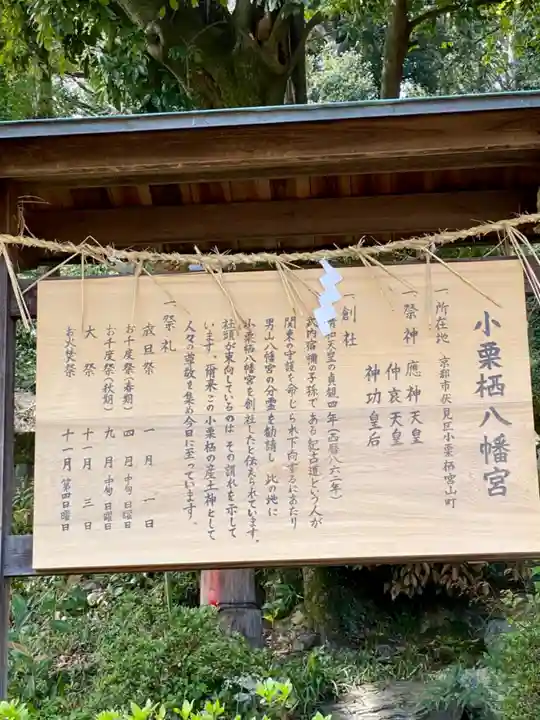 小栗栖八幡宮
一所在地 京都市伏見区小栗栖宮山町
一祭神 應神天皇
仲哀天皇
神功皇后
一創社
清和天皇の貞観四年(西暦八六二年)
武内宿禰の子孫である紀古道という人が
関東の守護を命じられ下向するにあたり
男山八幡宮の分霊を勧請し、此の地に
小栗栖八幡宮を創社したと伝えられています。
社頭が東向しているのは、その謂れを示して
います。爾来この小栗栖の産土神として
人々の尊敬を集め今日に至っています。
一祭礼
歳旦祭 一月一日
お千度祭(春期) 四月中旬日曜日
お千度祭(秋期) 九月中旬日曜日
大祭 十一月三日
お火焚祭 十一月第四日曜日